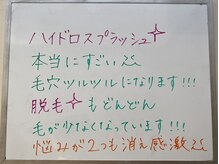 ハイドロスプラッシュ
本当にすごい
毛穴ツルツルになります!!!
脱毛もどんどん
毛が少なくなっています!!!
悩みが2つも消え感激